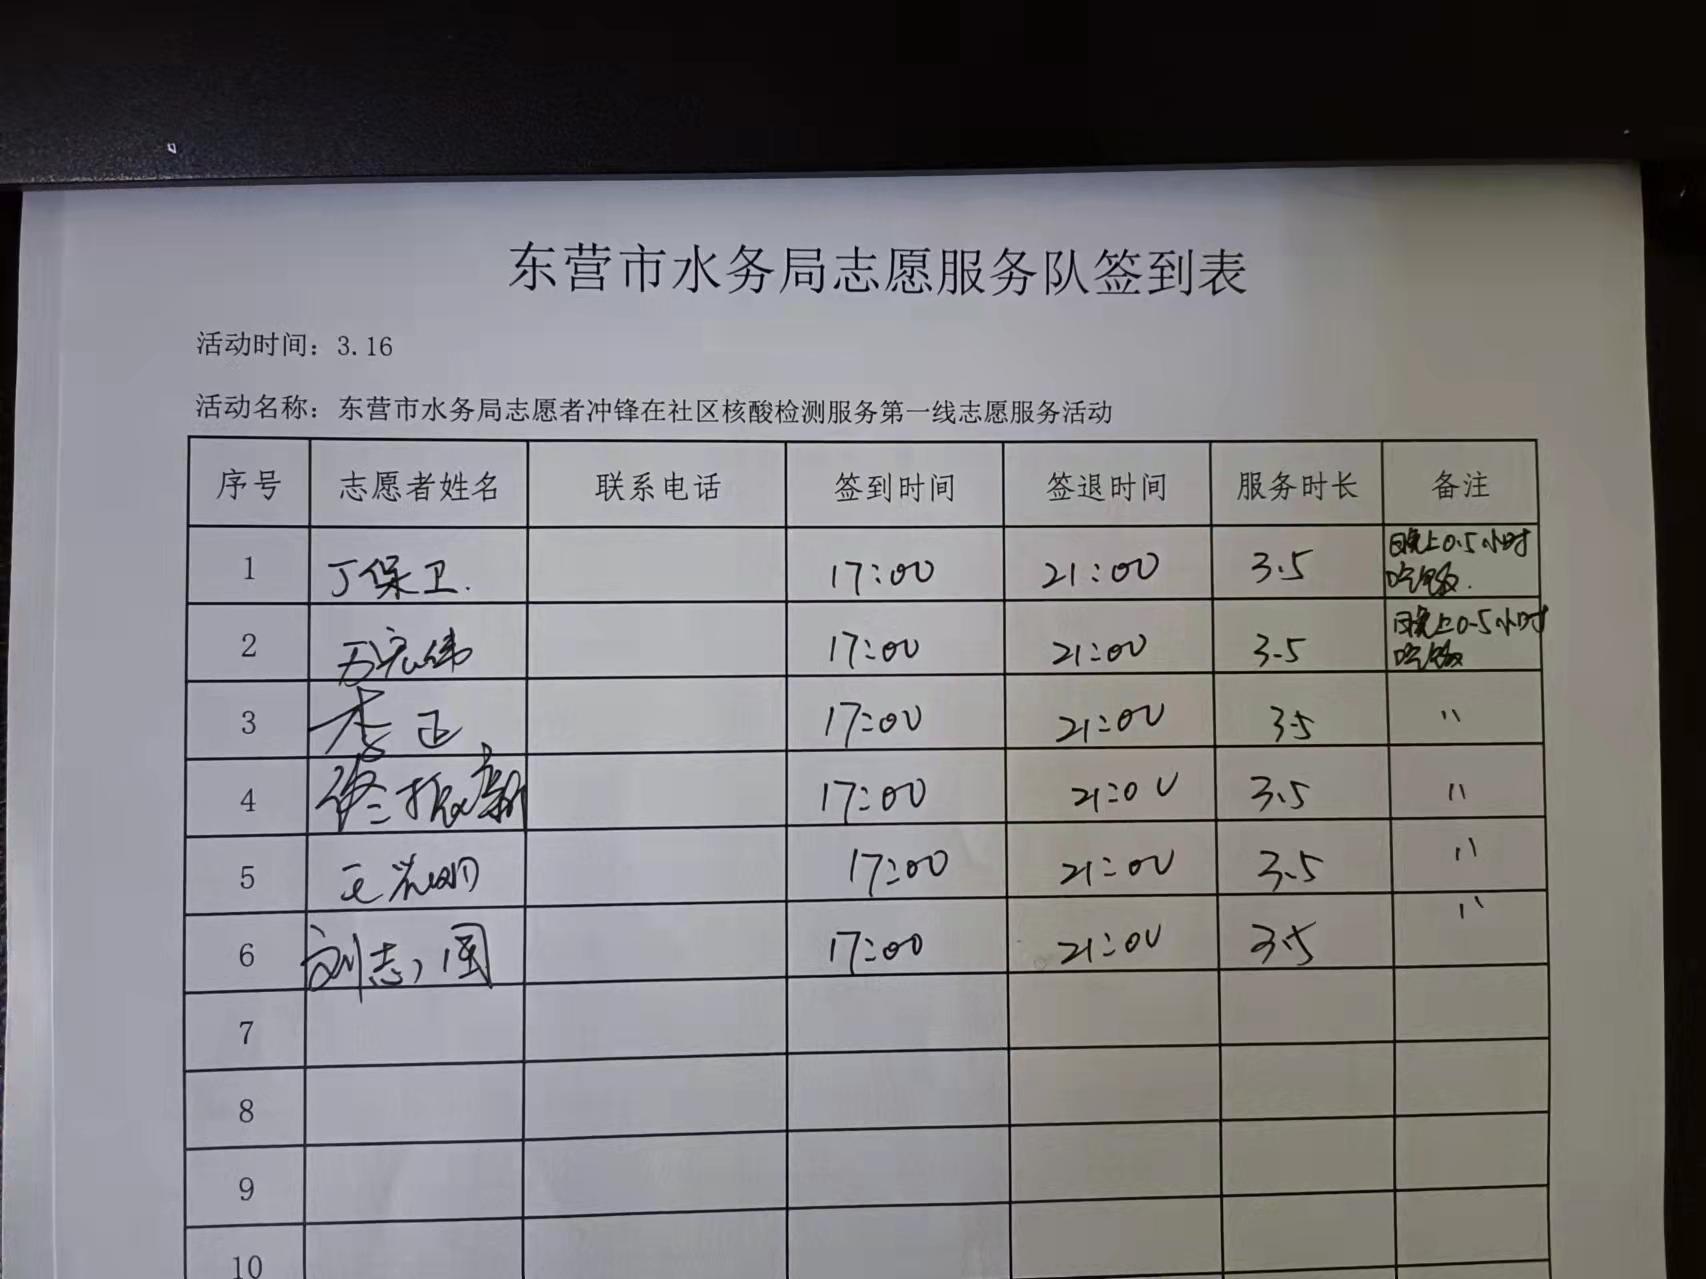 东营市水务局志愿服务队签到表
活动时间：3.16
活动名称：东营市水务局志愿者冲锋在社区核酸检测服务第一线志愿服务活动
序号 志愿者姓名 联系电话 签到时间 签退时间 服务时长 备注
1 丁保卫. 17:00 21:00 3.5 晚上0.5小时
吃饭.
2 17:00 21:00 3.5 晚上0.5小时
吃饭
3 李正 17:00 21:00 3.5 〃
4 17:00 21:00 3.5 〃
5 17:00 21:00 3.5 〃
6 刘志国 17:00 21:00 3.5 〃
7
8
9
10